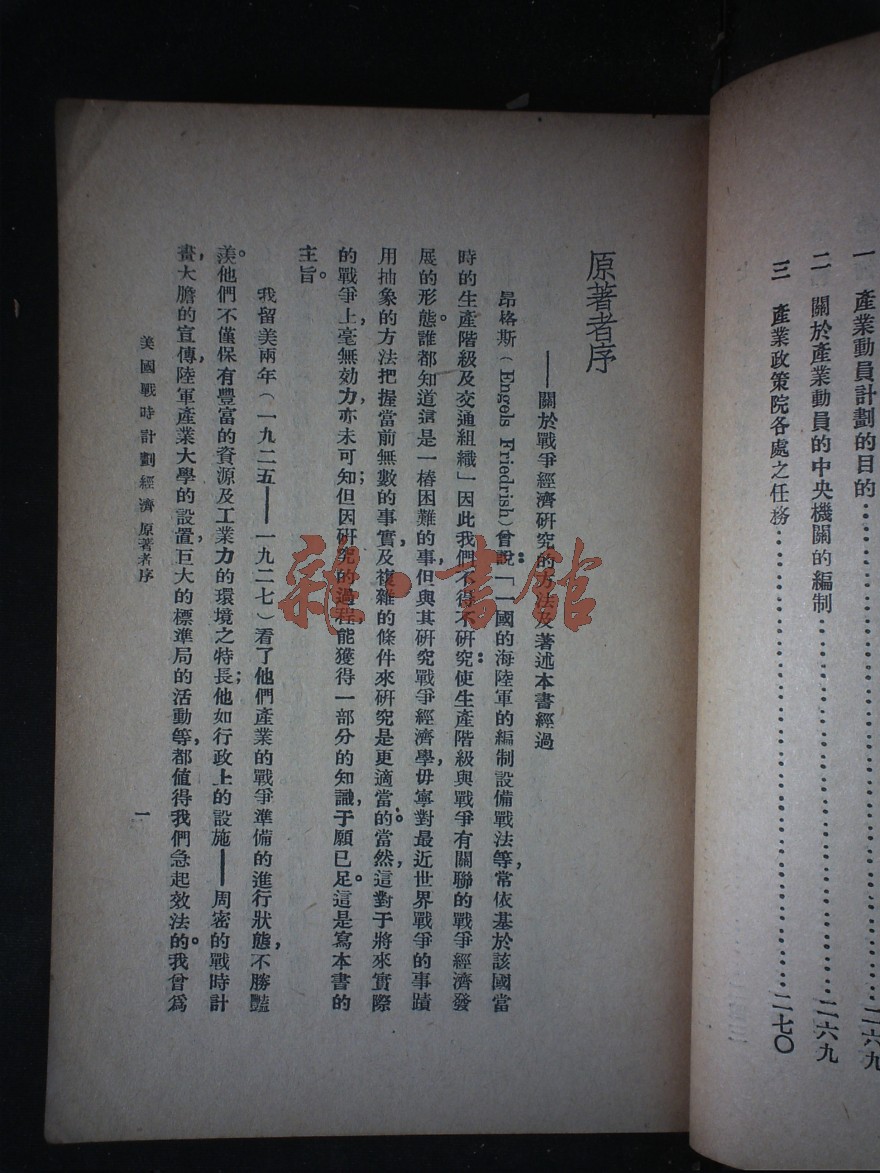 一　產業動員計劃的目的……………………二六九
二　關於產業動員的中央機關的編制……………………二六九
三　產業政策院各處之任務……………………二七〇
原著者序
——關於戰爭經濟研究的方法及著述本書經過
昂格斯（Engels Friedrish）曾說：「一國的海陸軍的編制設備戰法等，常依基於該國當
時的生產階級及交通組織」因此我們不得不研究：使生產階級與戰爭有關聯的戰爭經濟發
展的形態。誰都知道這是一樁困難的事，但與其研究戰爭經濟學，毋寧對最近世界戰爭的事蹟
用抽象的方法把握當前無數的事實，及複雜的條件來研究是更適當的。當然，這對于將來實際
的戰爭上，毫無効力，亦未可知；但因研究的過程，能獲得一部分的知識，于願已足。這是寫本書的
主旨。
我留美兩年（一九二五——一九二七）看了他們產業的戰爭準備的進行狀態，不勝豔
羨。他們不僅保有豐富的資源及工業力的環境之特長；他如行政上的設施——周密的戰時計
畫，大膽的宣傳，陸軍產業大學的設置，巨大的標準局的活動等，都值得我們急起效法的。我曾爲
美國戰時計劃經濟　原著者序
一
雜·書館